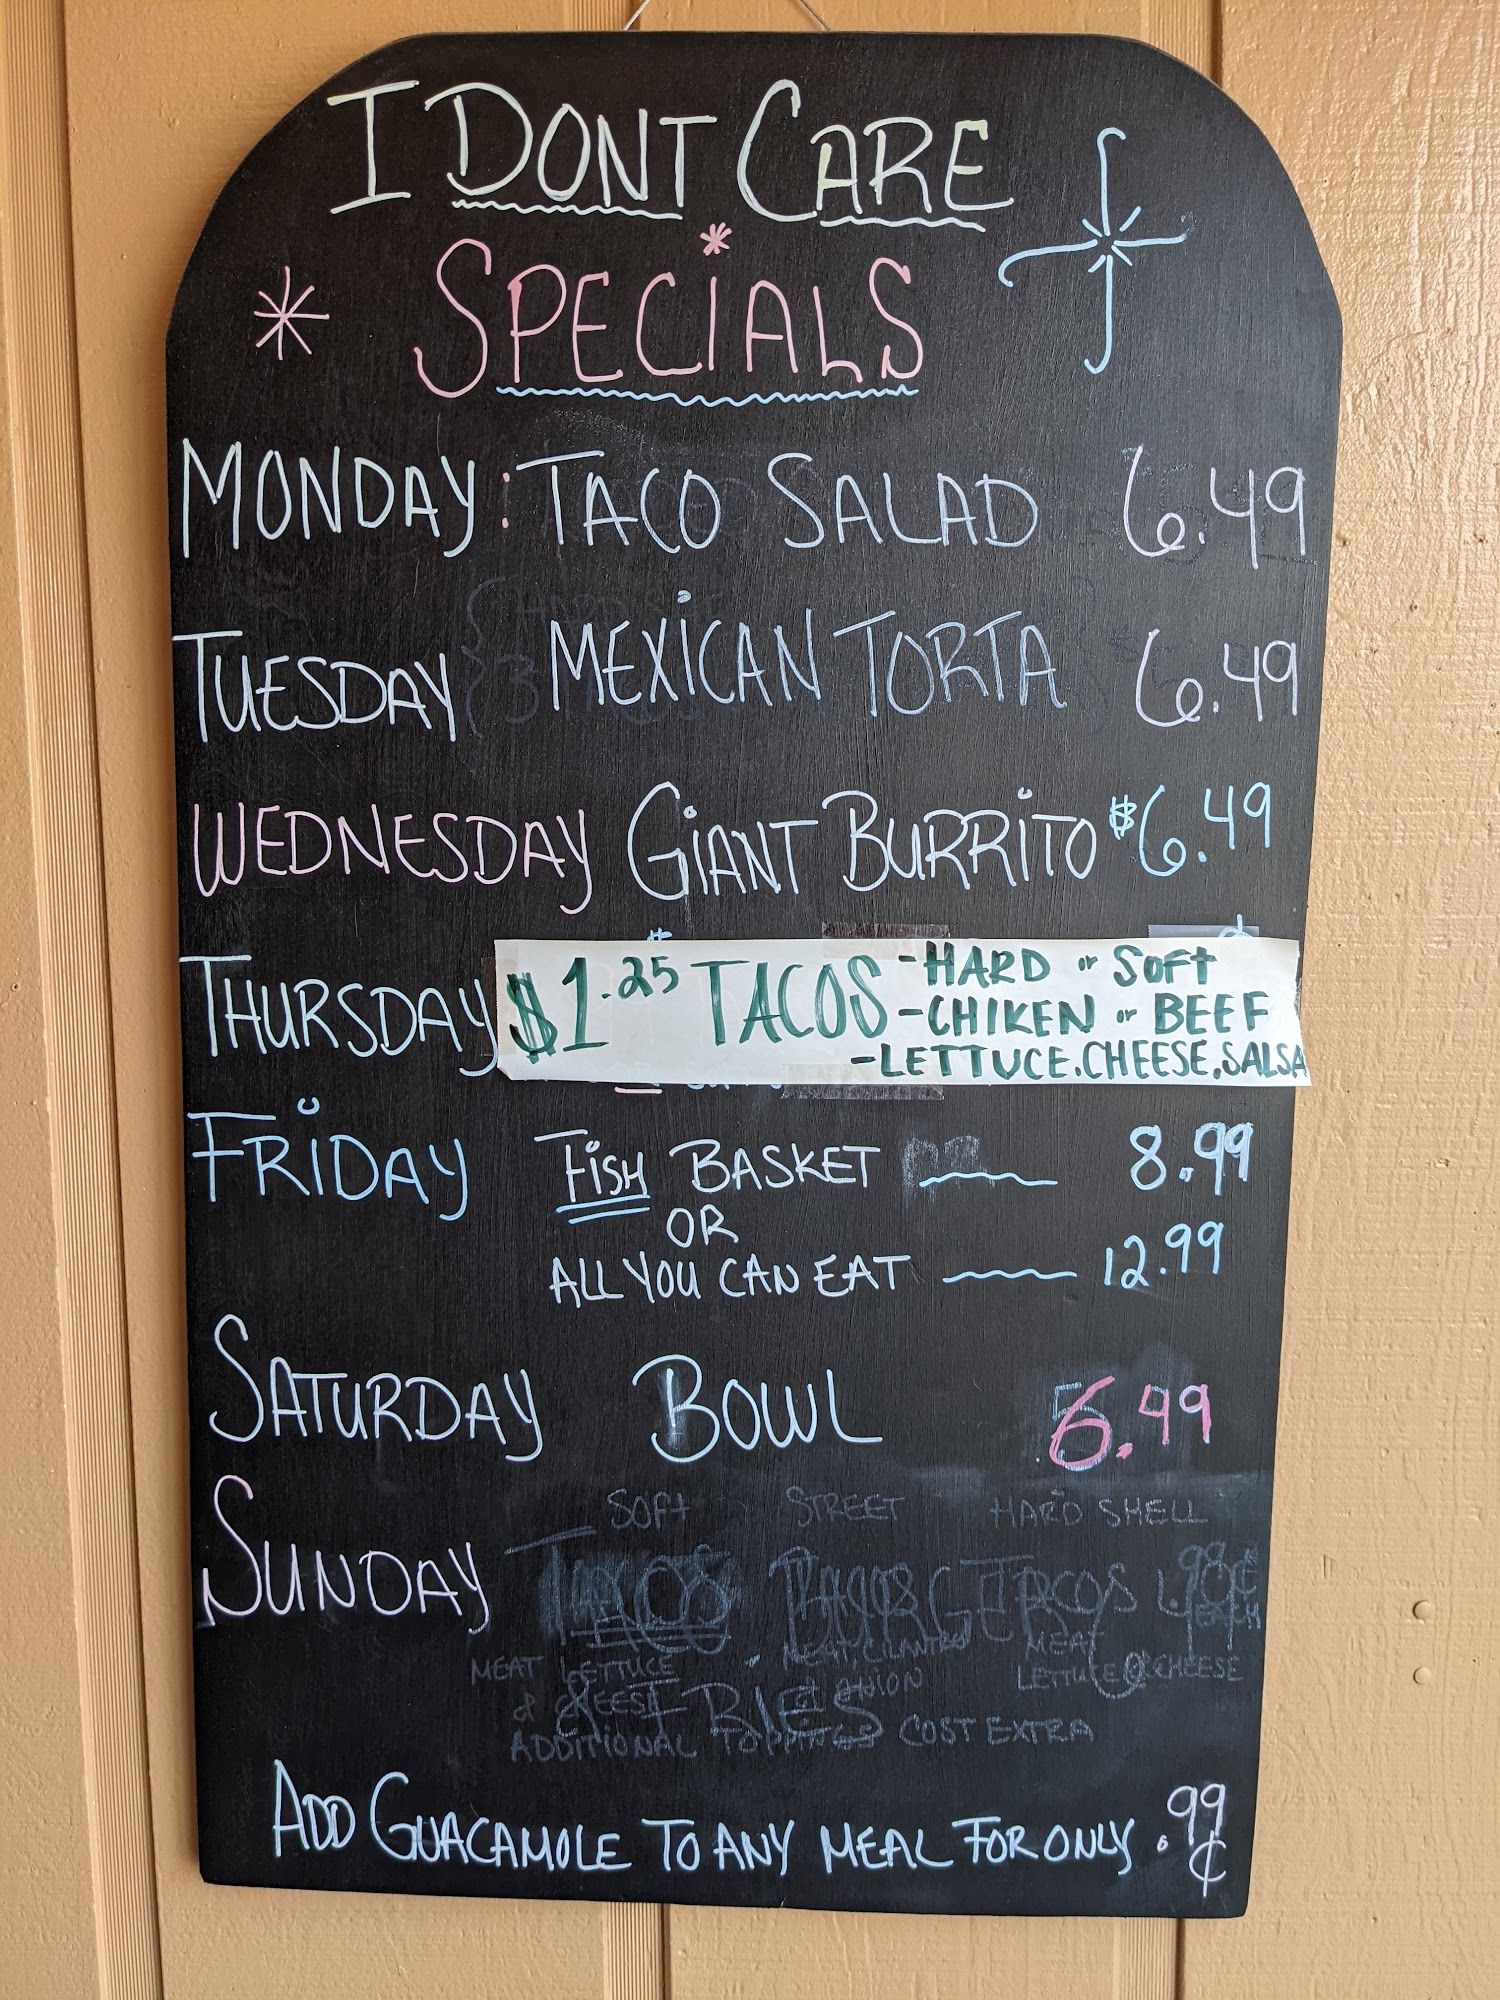 I DONT CARE
SPECIALS
MONDAY: TACO SALAD 6.49
TUESDAY MEXICAN TORTA 6.49
WEDNESDAY GIANT BURRITO $6.49
THURSDAY $1.25 TACOS -HARD or SOFT
-CHIKEN or BEEF
-LETTUCE.CHEESE.SALSA
FRIDAY FISH BASKET 8.99
OR
ALL YOU CAN EAT 12.99
SATURDAY BOWL 6.49
SOFT STREET HARD SHELL
SUNDAY TACOS TACOS
MEAT LETTUCE MEAT, CILANTRO MEAT
& CHEESE & ONION LETTUCE & CHEESE
ADDITIONAL TOPPINGS COST EXTRA
ADD GUACAMOLE TO ANY MEAL FOR ONLY .99¢